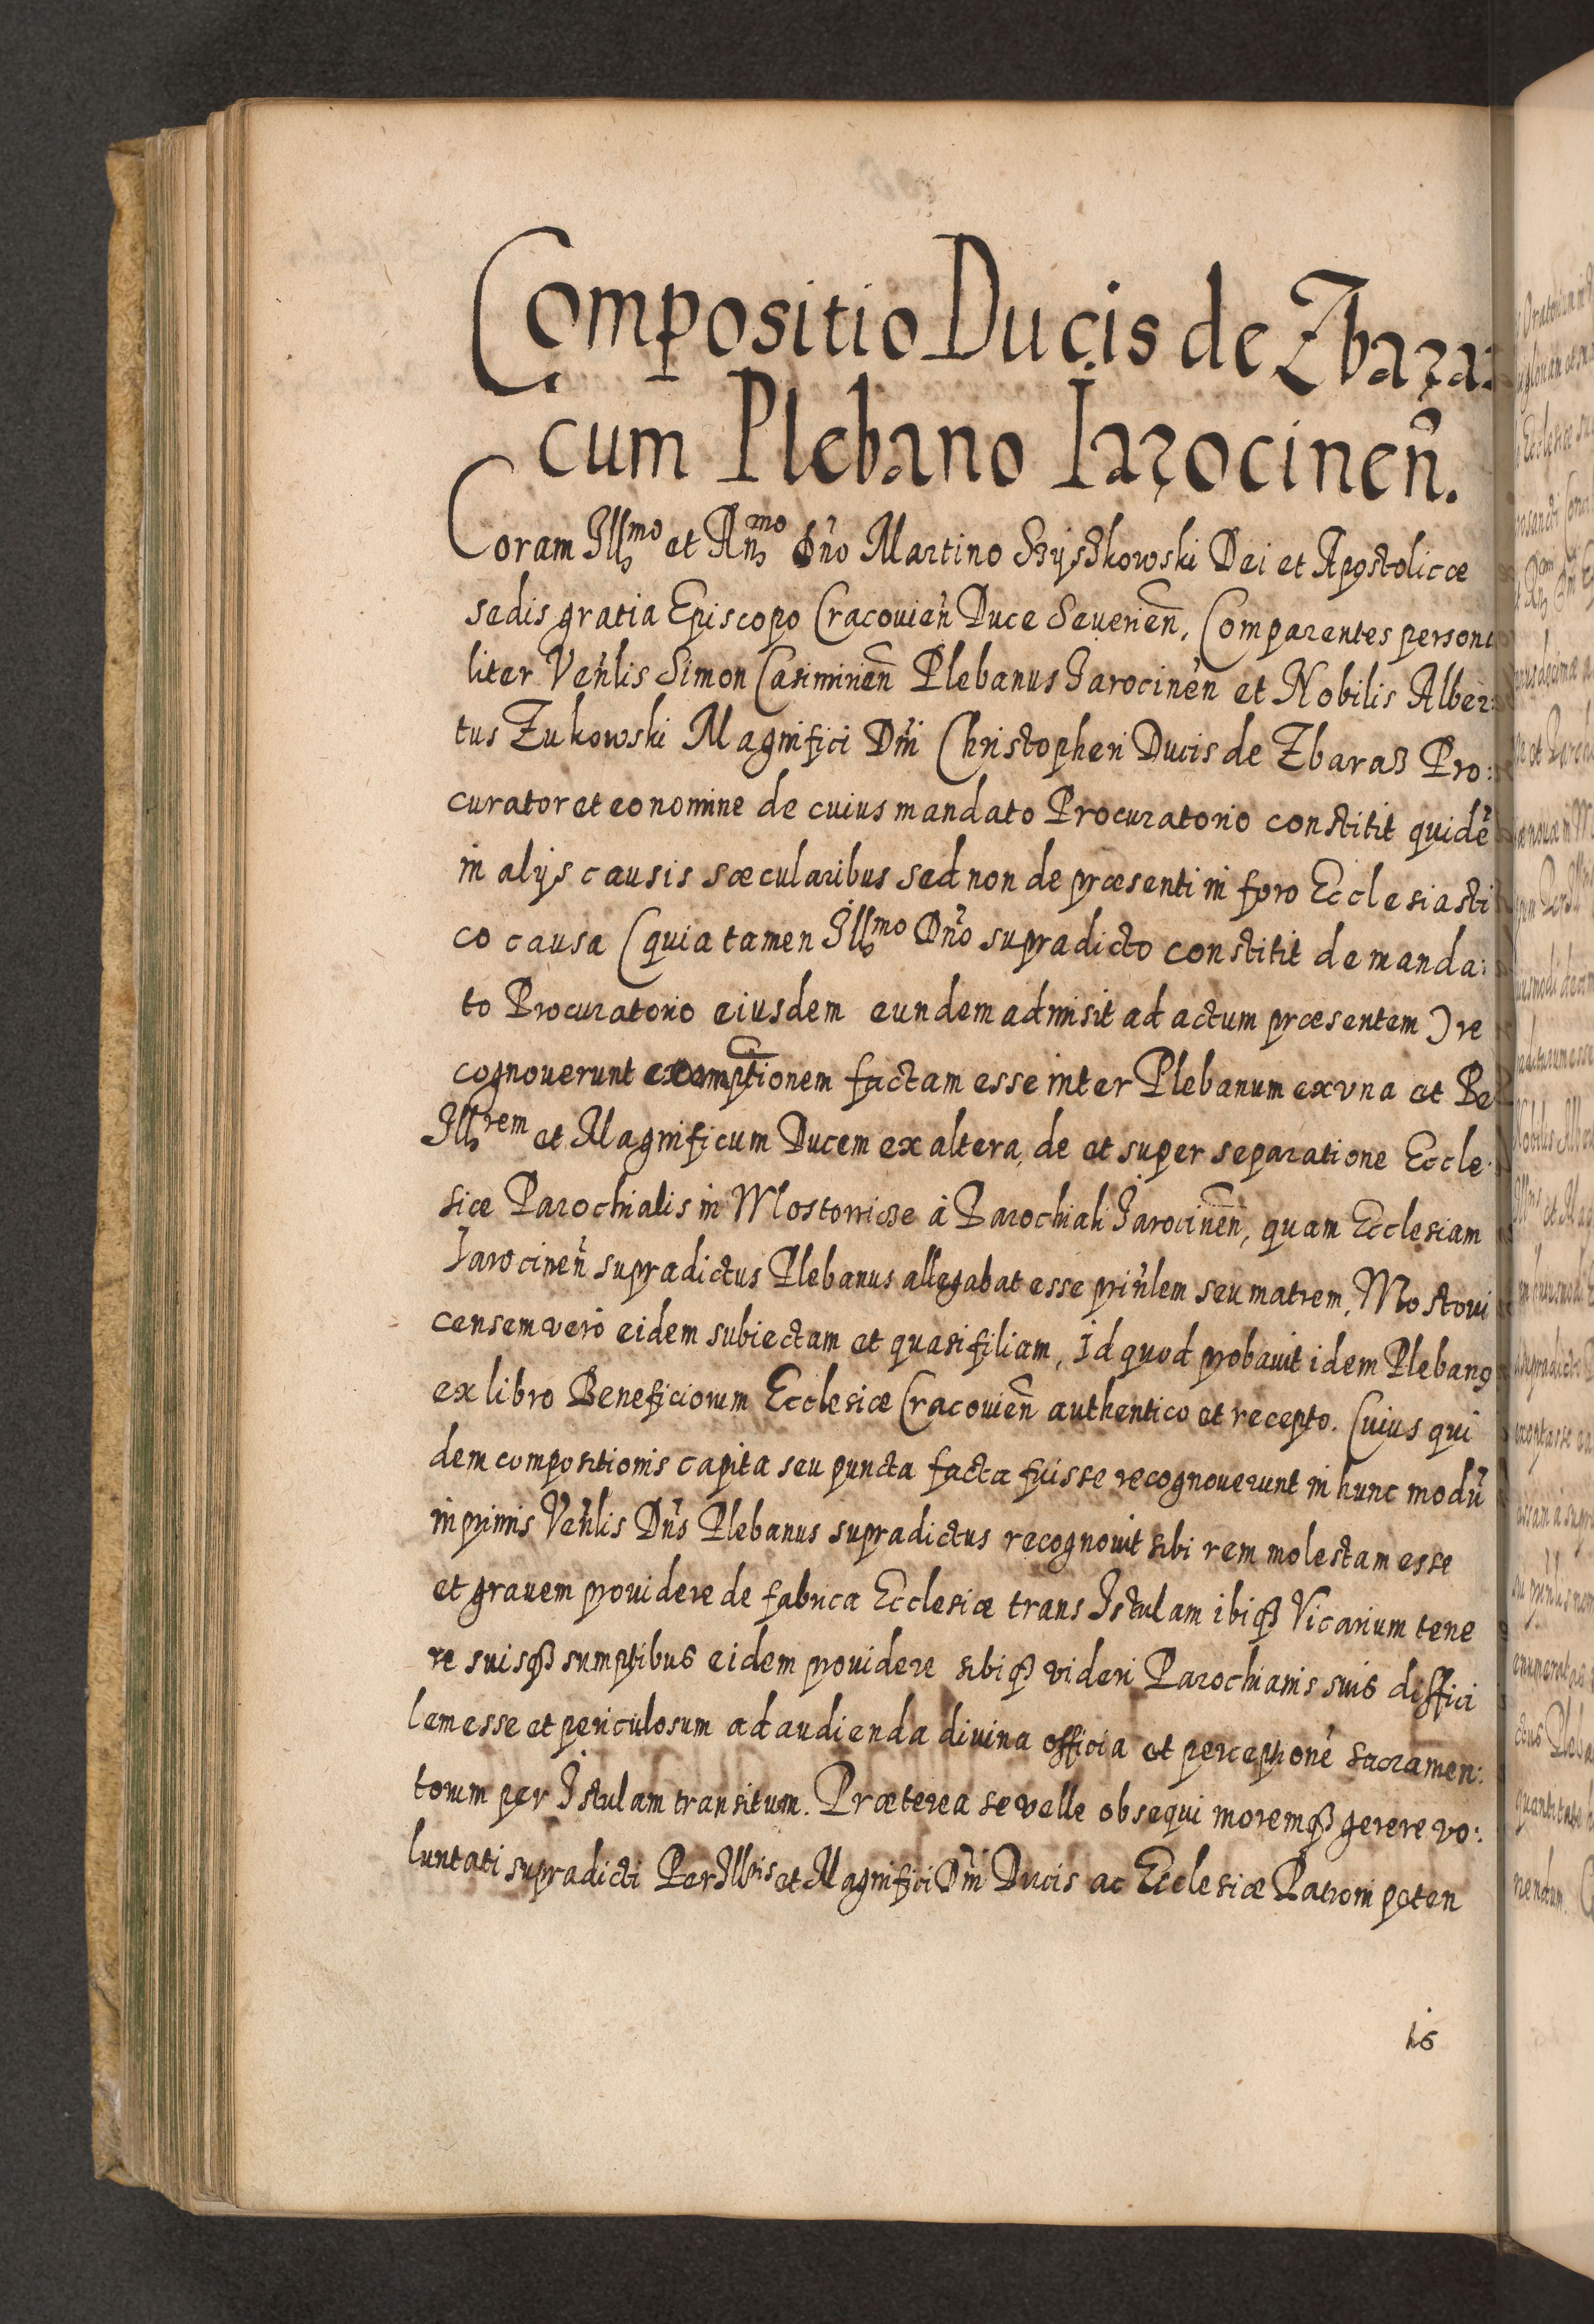 Compositio Ducis de Zbaraz
cum Plebano Jarocineñ.
Coram Illmo et Rñmo Dño Martino Szyszkowski Dei et Apostolicæ
sedis gratia Episcopo Cracovieñ Duce Severieñ, Comparentes persona
liter Veñlis Simon Casimirieñ Plebanus Jarocineñ et Nobilis Alber:
tus Zukowski Magnifici Dñi Christopheri Ducis de Zbaraß Pro:
curator et eo nomine de cuius mandato Procuratorio constitit quidẽ
in alijs causis sæcularibus sed non de præsenti in foro Ecclesiasti
co causa (quia tamen Illmo Dño supradicto constitit de manda:
to Procuratorio eiusdem eundem admisit ad actum præsentem) re
cognoverunt factam esse inter Plebanum ex una et Pe
Illrem et Magnificum Ducem ex altera, de et super separatione Eccle
siæ Parochialis in Mostowicze à Parochiali Jarocineñ, quam Ecclesiam
Jarocineñ supradictus Plebanus allegabat esse priñlem seu matrem, Mostovi
censem verò eidem subiectam et quasi filiam, Id quod probavit idem Plebanꝯ
ex libro Beneficiorum Ecclesiæ Cracovieñ authentico et recepto. Cuius qui
dem compositionis capita seu puncta facta fuisse recognoverunt in hunc modũ
inprimis Veñlis Dñs Plebanus supradictus recognovit sibi rem molestam esse
et gravem providere de fabrica Ecclesiæ trans Istulam ibiqȝ Vicarium tene
re suisqȝ sumptibus eidem providere sibiqȝ videri Parochianis suis diffici
lem esse et periculosum ad audienda divina officia et perceptionẽ sacramen:
torum per Istulam transitum. Præterea se velle obsequi moremqȝ gerere vo:
luntati supradicti Per Illris et Magnifici Dñi Ducis ac Ecclesiæ Patroni peten